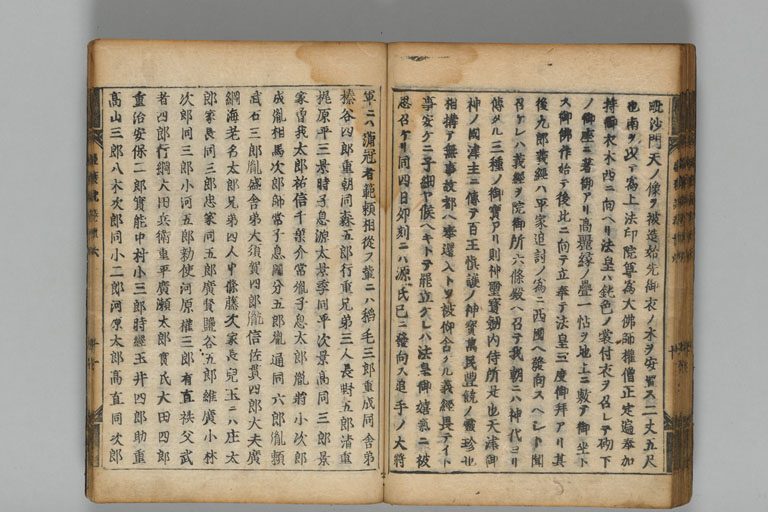 毗沙門天ノ像ヲ被造始先御衣ノ木ヲ安置ス二丈五尺
也南ヲ以テ爲上法印院尊爲大佛師權僧正定遍奉加
持御衣木西ニ向ヘリ法皇ハ鈍色ノ裳付衣ヲ召レテ砌下
ノ御座ニ著御アリ高麗縁ノ疊一帖ヲ地上ニ敷テ御坐ト
ス御佛作始テ後北ニ向テ立奉テ法皇三度御拜アリ其
後九郎義經ハ平家追討ノ爲ニ西國ヘ發向スヘシト聞
召ケレハ義經ヲ院御所六條殿ヘ召テ我朝ニハ神代ヨリ
傳タル三種ノ御寶アリ則神璽寶劔内侍所是也天津御
神ノ國津主ニ傳テ百王愼護ノ神寶萬民豐饒ノ靈珍也
相搆テ無事故都ヘ奉還入トソ被仰含タル義經畏テイト
事安ケニ子細ヤ候ヘキトテ罷立ケレハ法皇御嬉氣ニ被
思召ケリ同四日卯刻ニハ源氏已ニ發向ス追手ノ大將
軍ニハ蒲冠者範頼相從フ輩ニハ稻毛三郎重成同舎弟
榛谷四郎重朝同森五郎行重兄弟三人長野五郎清重
梶原平三景時子息源太景季同平次景高同三郎景
家曾我太郎祐信千葉介常胤子息太郎胤將小次郎
成胤相馬次郎師常子息國分五郎胤通同六郎胤頼
武石三郎胤盛舎弟大須賀四郎胤信佐貫四郎大夫廣
綱海老名太郎兄弟四人中條藤次家長兒玉ニハ庄太
郎家長同三郎忠家同五郎廣賢鹽谷五郎維廣小林
次郎同三郎小河五郎勅使河原權三郎有直秩父武
者四郎行綱大田兵衛重平廣瀬太郎實氏大田四郎
重治安保二郎實能中村小三郎時經玉井四郎助重
高山三郎八木次郎同小二郎河原太郎高直同次郎